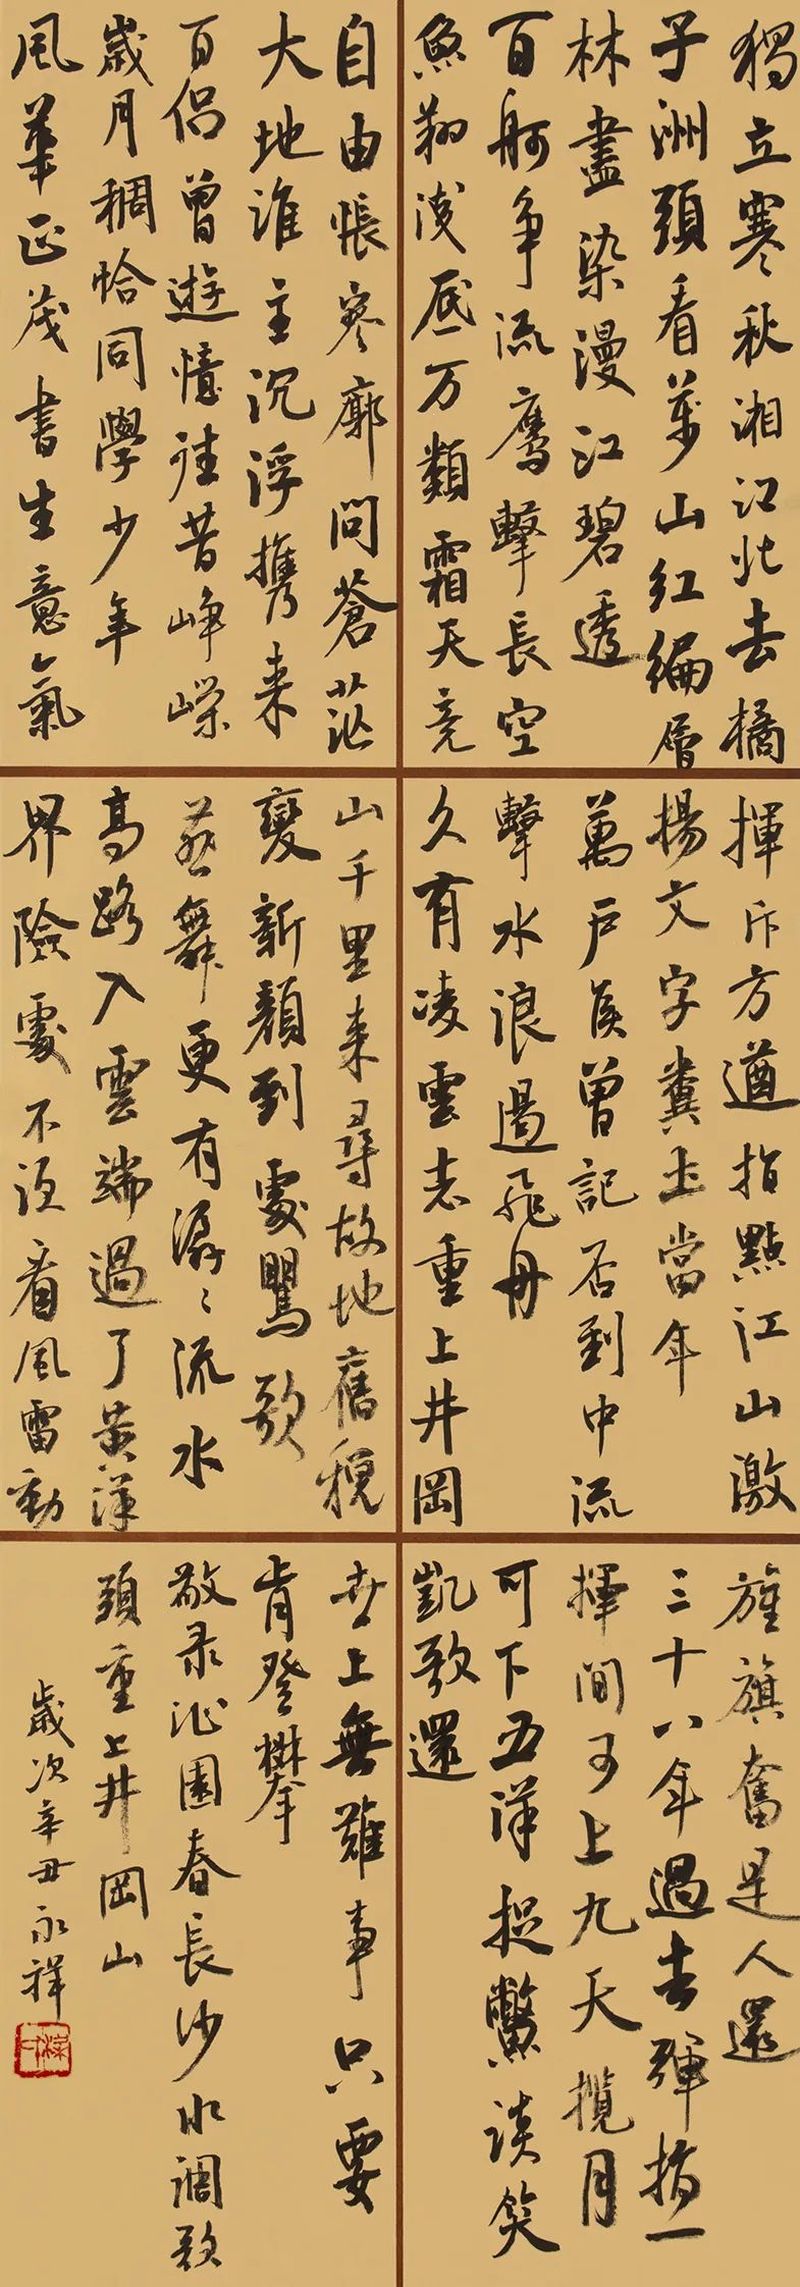 獨立寒秋湘江北去橘
子洲頭看萬山紅徧層
林盡染漫江碧透
百舸争流鷹擊長空
魚翔淺底万類霜天竞
自由悵寥廓問蒼茫
大地誰主沉浮携来
百侣曾遊憶往昔崢嶸
歲月稠恰同學少年
風華正茂書生意氣
揮斥方遒指點江山激
揚文字糞土當年
萬户侯曾記否到中流
擊水浪遏飛舟
久有凌雲志重上井岡
山千里来尋故地舊貌
變新顔到處鶯歌
燕舞更有潺〻流水
高路入雲端過了黄洋
界險處不須看風雷動
旌旗奮是人還
三十八年過去彈指一
揮間可上九天攬月
可下五洋捉鱉談笑
凱歌還
世上無難事只要
肯登攀
敬录沁園春長沙水調歌
頭重上井岡山
歲次辛丑永祥